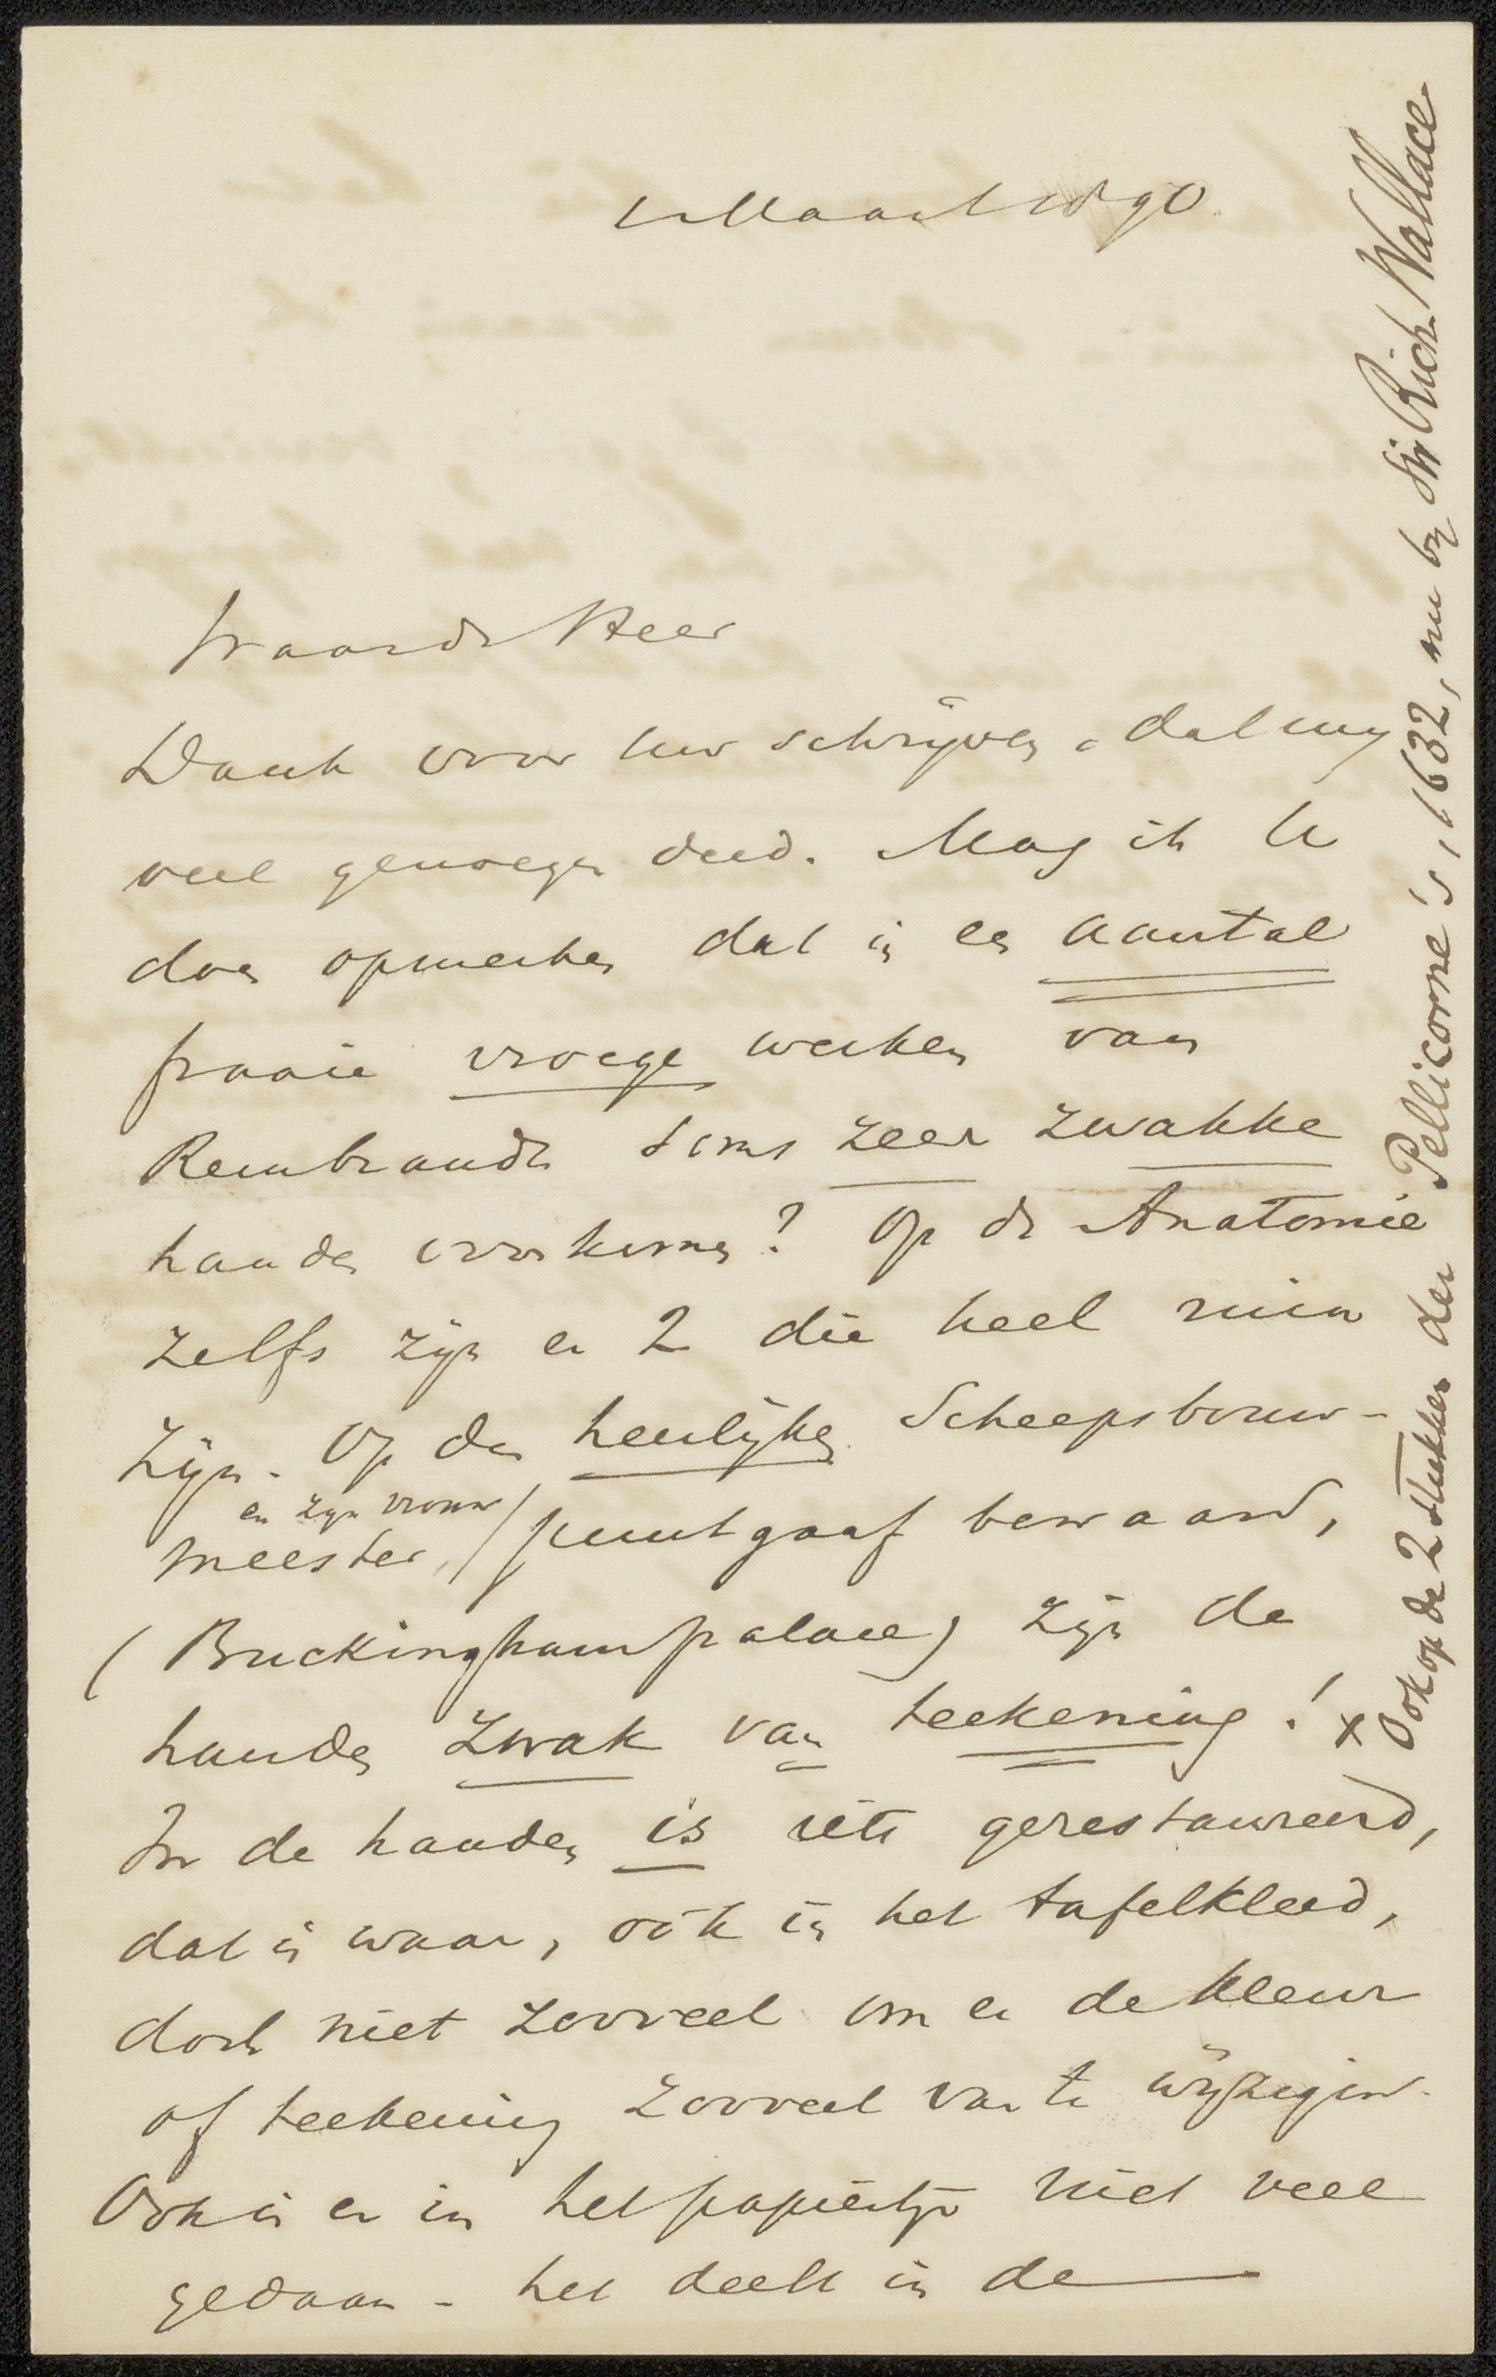 Maart 1890.
Waarde Heer
Dank voor uw schrijven, dat my
veel genoegen deed. Mag ik U
doen opmerken dat in een aantal
fraaie vroege werken van
Rembrandt soms zeer zwakke
handen voorkomen? Op de Anatomie
zelfs zijn er 2 die heel min
zijn. Op den heerlijken Scheepsbouw-
en zijn vrouw
meester, / puntgaaf bewaard,
(Buckingham palace) zijn de
handen zwak van teekening! x
In de handen is iets gerestaureerd,
dat is waar, ook in het tafelkleed,
doch niet zooveel om er de kleur
of teekening zooveel van te wijzigen.
Ook is er in het papiertje niet veel
gedaan - het deelt in de
x Ook op de 2 stukken der Pellicorne's, 1632, nu by Sir Rich. Wallace